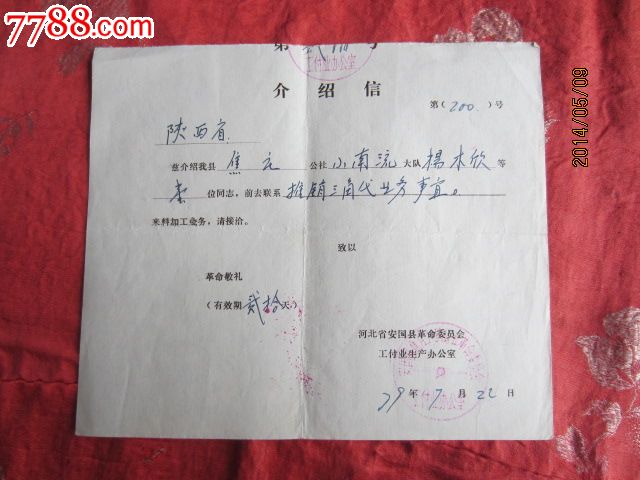 7788.com
2014/05/09
第 号
工付业办公室
介绍信
第(200.)号
陕西省
兹介绍我县 焦元 公社 小南流 大队 楊木欣 等
位同志,前去联系 推销三角代业务事宜。
来料加工业务,请接洽。
致以
革命敬礼
(有效期 贰拾 天)
河北省安国县革命委员会
工付业生产办公室
工付业办公室
79年7月22日